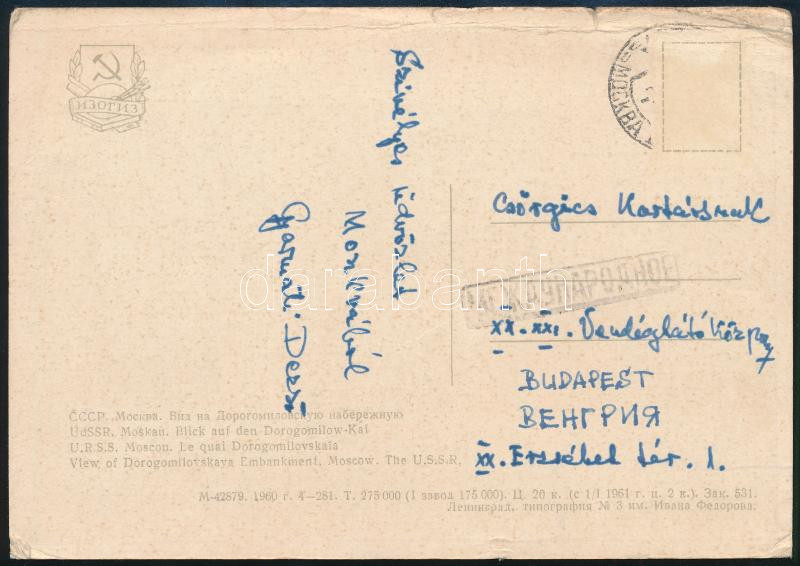 ИЗОГИЗ
МОСКВА
Szívélyes üdvözlet
Moszkvából
Gyarmati Dezső
Csörgics Kartársnak
МЕЖДУНАРОДНОЕ
XX. XXI. Vendéglátó Közp
BUDAPEST
ВЕНГРИЯ
XX. Erzsébet tér. 1.
darabanth
СССР. Москва. Вид на Дорогомиловскую набережную
UdSSR. Moskau. Blick auf den Dorogomilow-Kai
U.R.S.S. Moscou. Le quai Dorogomilovskaïa
View of Dorogomilovskaya Embankment, Moscow. The U.S.S.R.
М-42879. 1960 г. 4-281. Т. 275 000 (1 завод 175 000). Ц. 20 к. (с 1/I 1961 г. ц. 2 к.). Зак. 531.
Ленинград, типография № 3 им. Ивана Федорова.